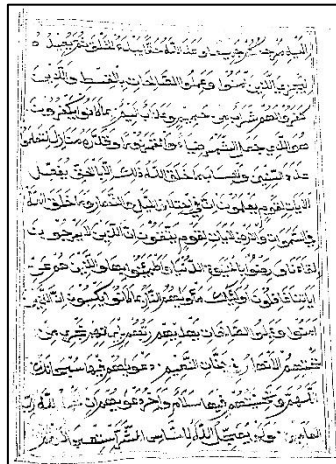 إليه مرجعكم جميعا وعد الله حقا إنه يبدؤا الخلق ثم يعيده
ليجزي الذين آمنوا وعملوا الصالحات بالقسط والذين
كفروا لهم شراب من حميم وعذاب أليم بما كانوا يكفرون
هو الذي جعل الشمس ضياء والقمر نورا وقدره منازل لتعلموا
عدد السنين والحساب ما خلق الله ذلك إلا بالحق يفصل
الآيات لقوم يعلمون إن في اختلاف الليل والنهار وما خلق الله
في السموات والأرض لآيات لقوم يتقون إن الذين لا يرجون
لقاءنا ورضوا بالحيوة الدنيا واطمأنوا بها والذين هم عن
آياتنا غافلون أولئك مأويهم النار بما كانوا يكسبون إن الذين
آمنوا وعملوا الصالحات يهديهم ربهم بإيمانهم تجري من
تحتهم الأنهار في جنات النعيم دعويهم فيها سبحانك
اللهم وتحيتهم فيها سلام وآخر دعويهم أن الحمد لله رب
العالمين ولو يعجل الله للناس الشر استعجالهم